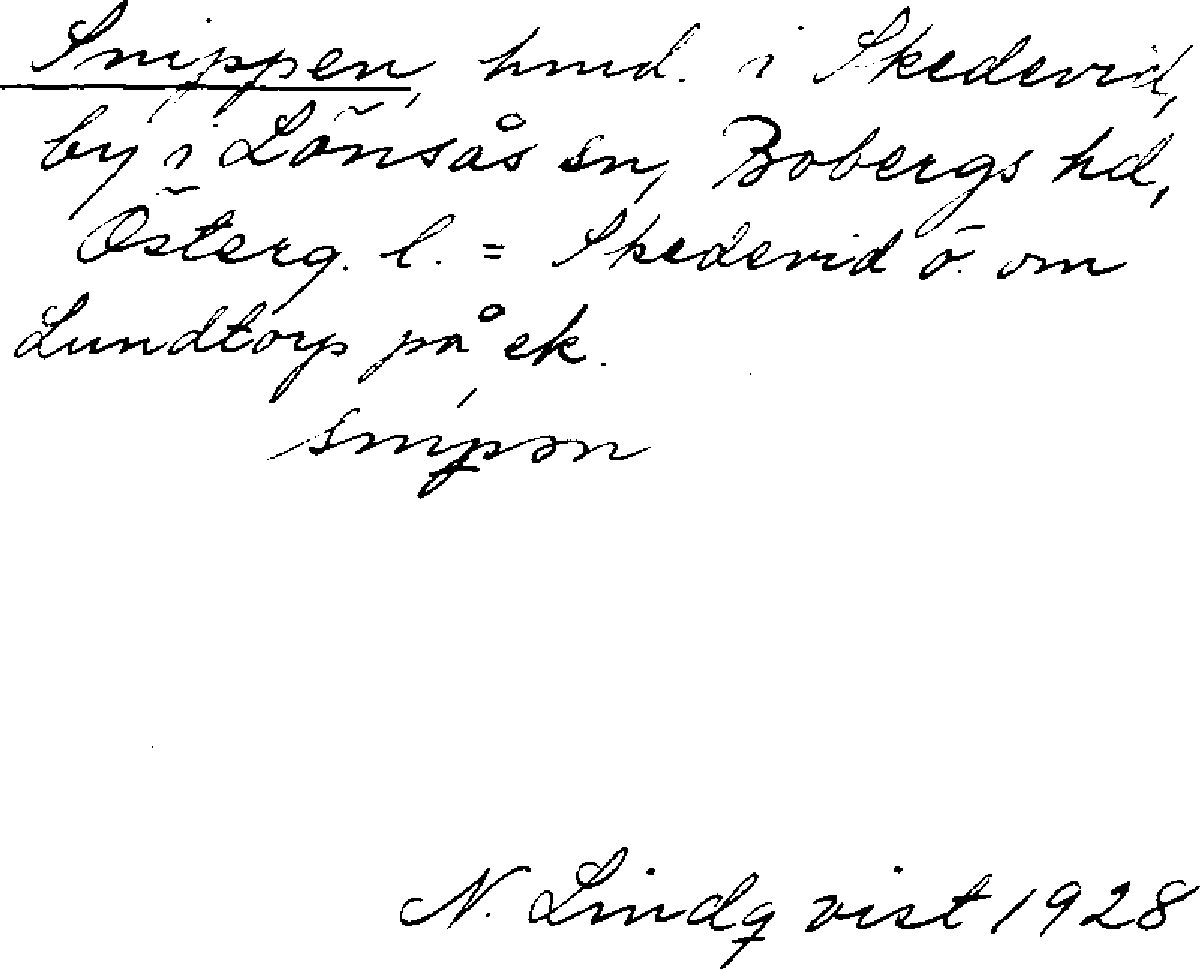 Snippen, hmd. i Skedevid,
by i Lönsås sn, Bobergs hd,
Österg. l. = Skedevid ö. om
Lundtorp på ek.
snípən
N. Lindqvist 1928